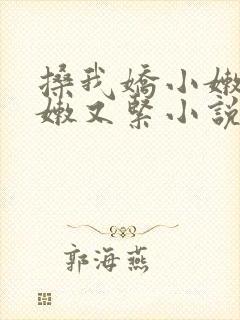 搡我嬌小嫩
嫩又緊小說
郭海燕